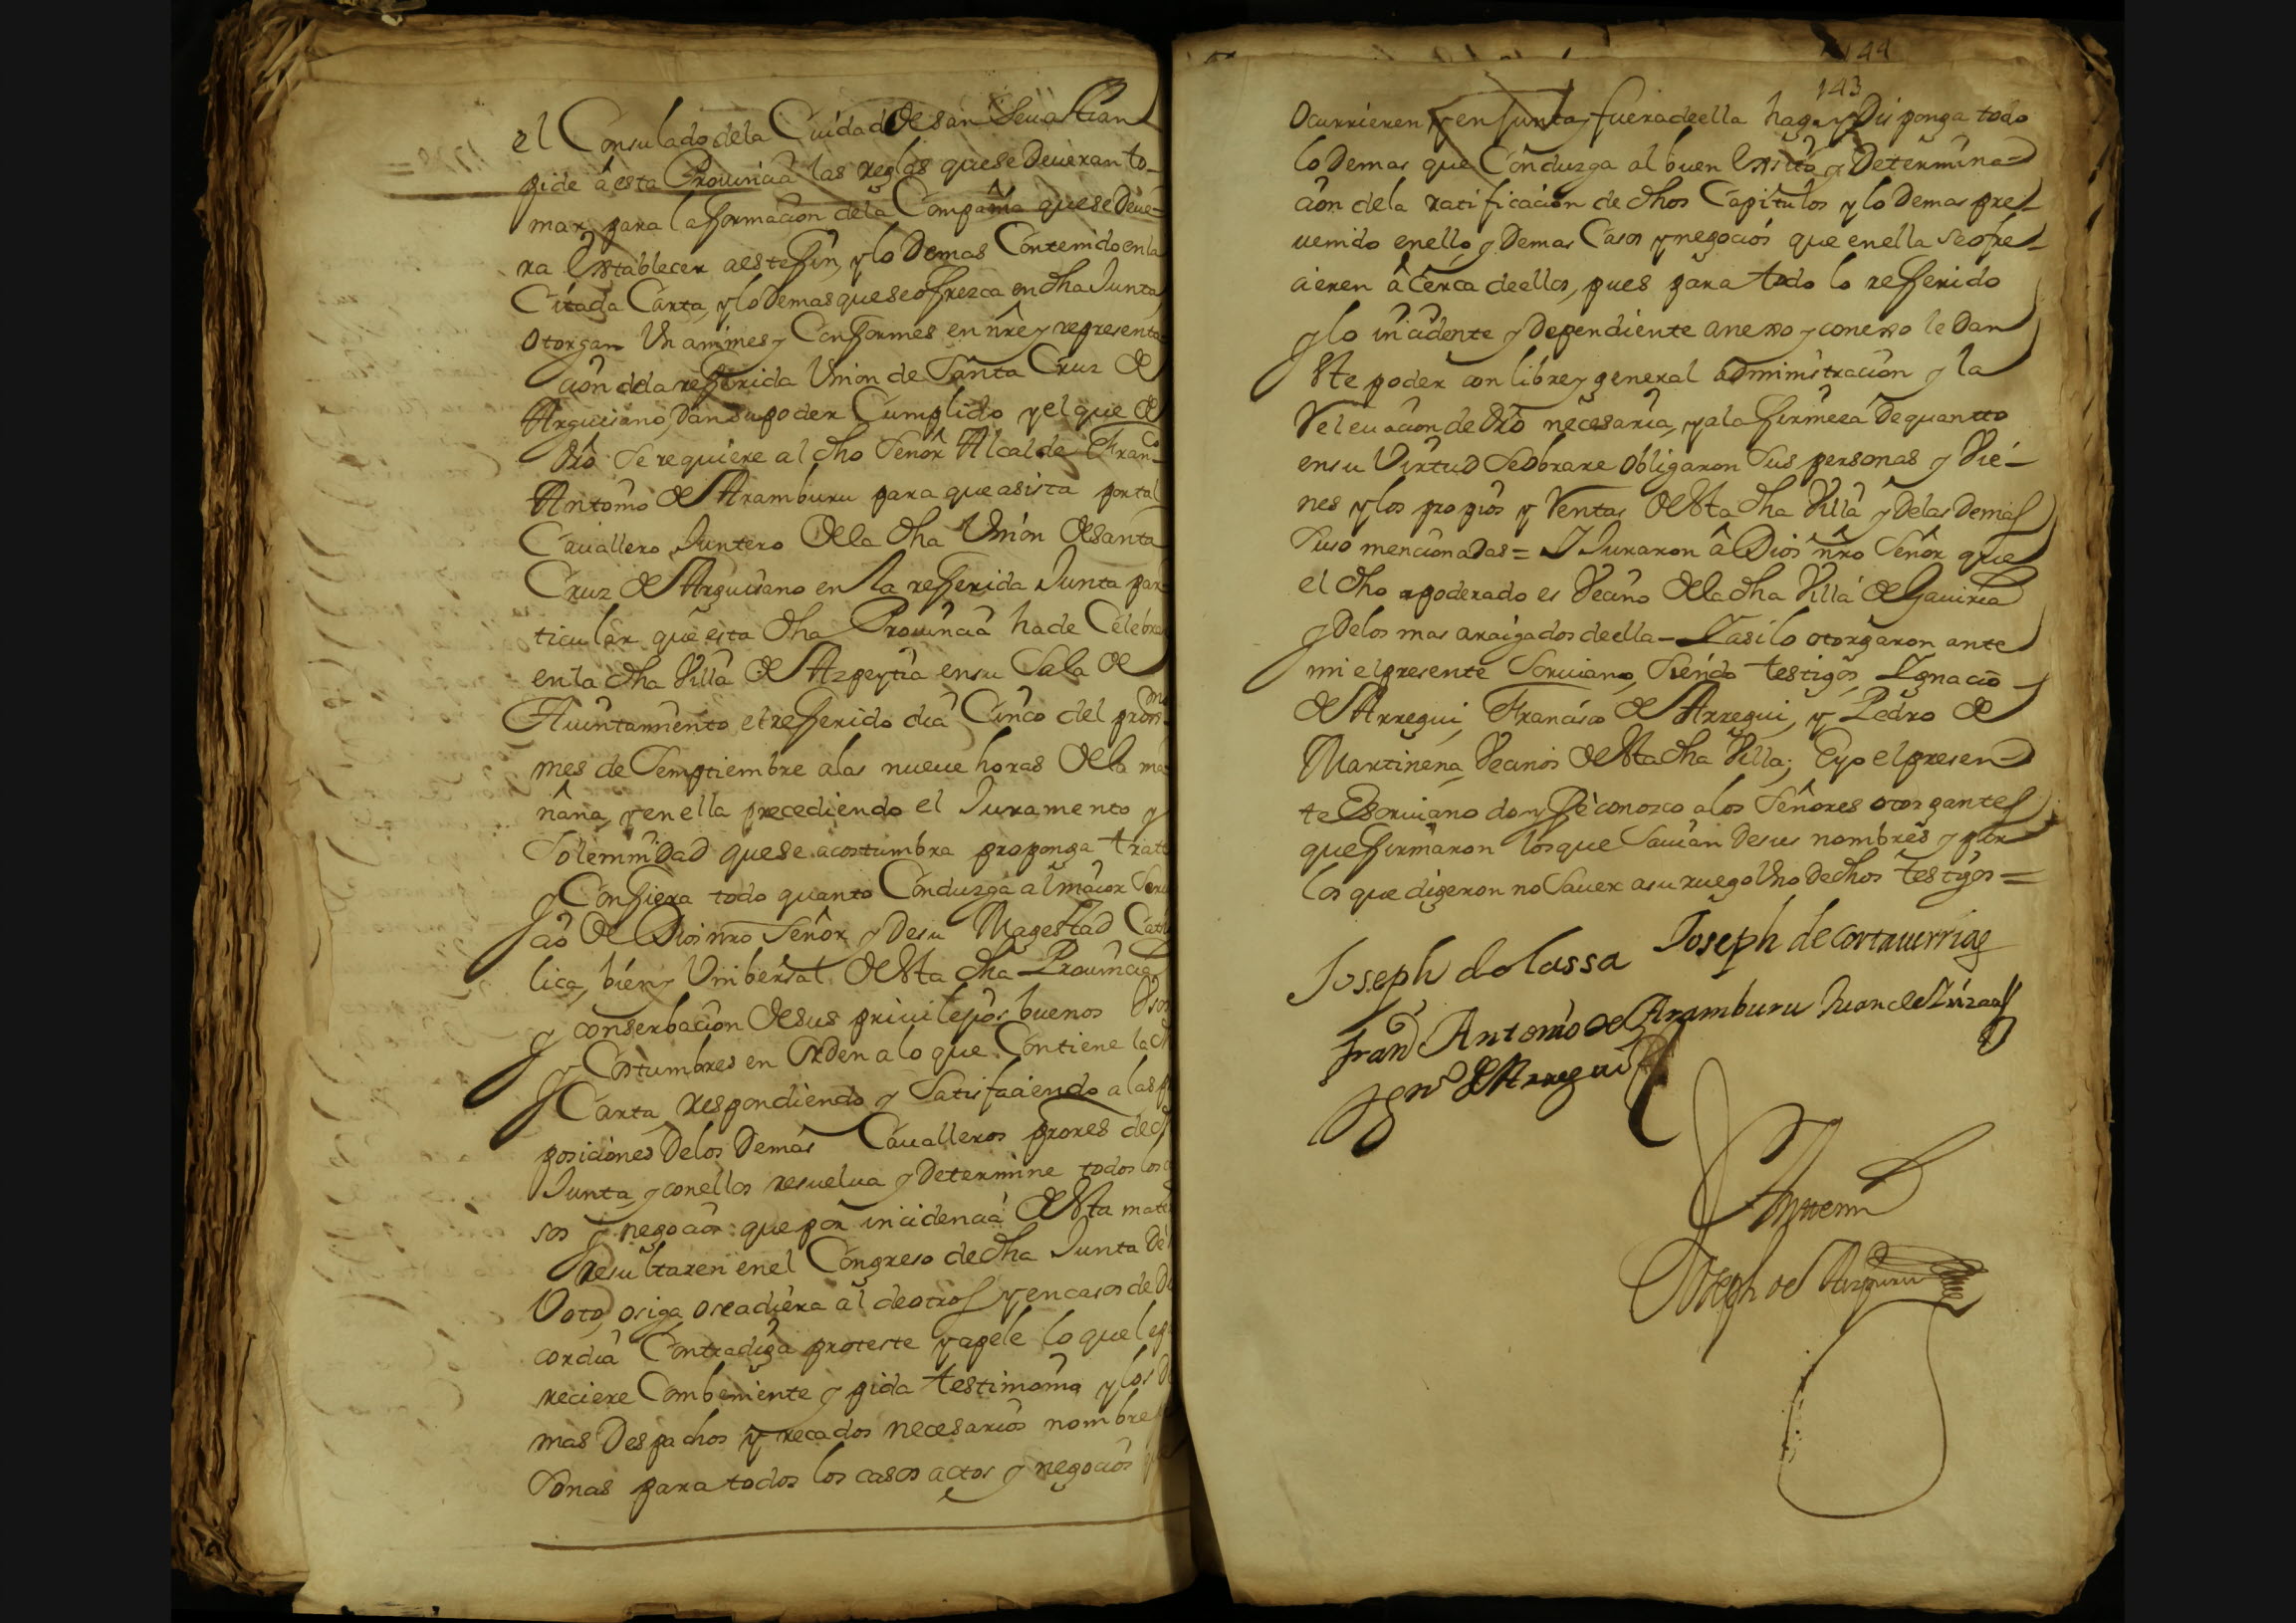 el Consulado dela Ciudad de san Sevastian
pide â esta Provincia las reglas que se Deveran to-
mar para la formacion dela Compañia que se Deve-
ra Establecer a este fin, y lo Demas Contenido en la
Citada Carta, y lo Demas que se ofrezca en dha Junta
otorgan Unanimes y Conformes en nrê y representa-
cion dela refferida Union de Santa Cruz de
Arguisano, Dan su poder Cumplido y el que de
dro Se requiere al dho Señor Alcalde Franco
Antonio de Aramburu para que asista por tal
Cavallero Juntero de la dha Union de santa
Cruz de Arguisano en la refferida Junta par-
ticular que esta dha Provincia ha de Celebrar
en la dha Villa de Azpeytia en su Sala de
Auintamiento el refferido dia Cinco del proxmo
mes de Semptiembre a las nueve horas de la ma-
ñana, y en ella precediendo el Juramento y
Solemnidad que se acostumbra proponga trate
y Confiera todo quanto Conduzga al maior Servi
cio de Dios nro Señor y De su Magestad Cato
lica, bien y Unibersal de Esta dha Provincia
y conserbacion de sus privilejios buenos Usos
y Costumbres en Orden a lo que Contiene la dha
Carta, respondiendo y Satisfaciendo a las
posiciones De los Demas Cavalleros prores de dha
Junta, y con ellos resuelva y Determine todos los
sos y negocios que por incidencia de Esta mate
Resultaren en el Congreso de dha Junta De
Voto, o siga o se adiera al de otros y en casos de Dis
cordia Contradiga proteste y apele lo que le pa
reciere Combeniente y pida testimonio y los De
mas Despachos y recados necesarios nombre
sonas para todos los casos actos y negocios
144
143
Ocurrieren y en Junta y fuera de ella haga y Disponga todo
lo Demas que Conduzga al buen Exsito y Determina-
cion dela ratificacion de dhos Capitulos y lo Demas pre-
venido en ello, y Demas Casos y negocios que en ella se ofre-
cieren âcerca de ellos, pues para todo lo refferido
y lo incidente y Dependiente anexo y conexo le Dan
Este poder con libre y general administracion y la
Relevacion de dro necesaria, y a la firmeza De quantto
en su Virtud se obrare obligaron Sus personas y Vie-
nes y los propios y Rentas de Esta dha Villa y De las Demas
Suso mencionadas = I Juraron â Dios nro Señor que
el dho apoderado es Vecino de la dha Villa de Gaviria
y De los mas araigados de ella - I asi lo otorgaron ante
mi el presente Scriviano, Siendo testigos, Ignacio
de Arregui, Francisco de Arregui, y Pedro de
Martinena Vecinos de Esta dha Villa; E yo el presen-
te Escriviano doy feê conozco a los Señores otorgantes
que firmaron los que Savian De sus nombres y por
los que digeron no Saver a su ruego Uno De dhos testigos =
Joseph de lassa Joseph de cortaverria
Franco Antonio de Aramburu Juan de
Igno de Arregui
Ante mi
Joseph de Aizpuru